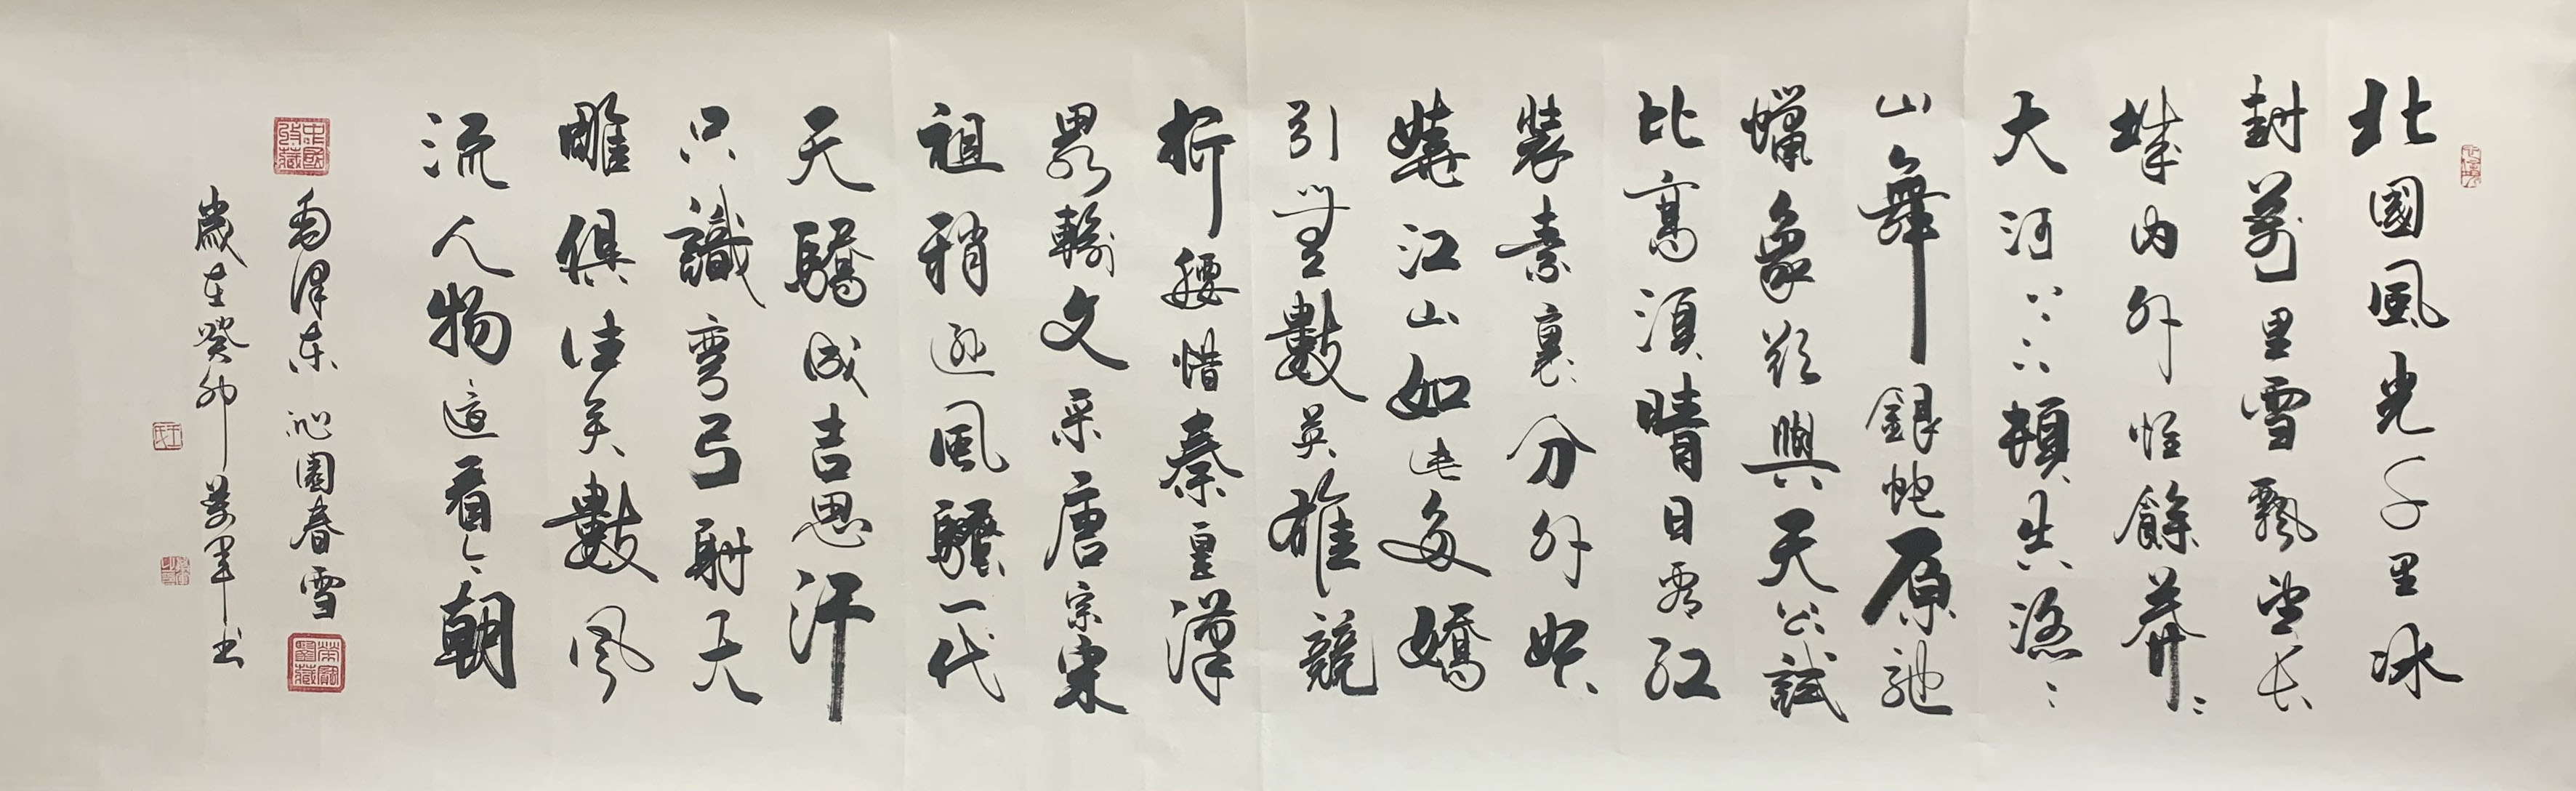 北國風光千里冰
封萬里雪飄望长
城内外惟餘莽〻
大河上下頓失滔〻
山舞銀蛇原馳
蠟象欲與天公試
比高須晴日看红
装素裹分外妖
嬈江山如此多嬌
引無數英雄競
折腰惜秦皇漢
略輸文采唐宗宋
祖稍遜風騷一代
天驕成吉思汗
只識彎弓射大
雕俱往矣數風
流人物還看今朝
中國收藏
毛澤东 沁園春雪
歲在癸卯 军书